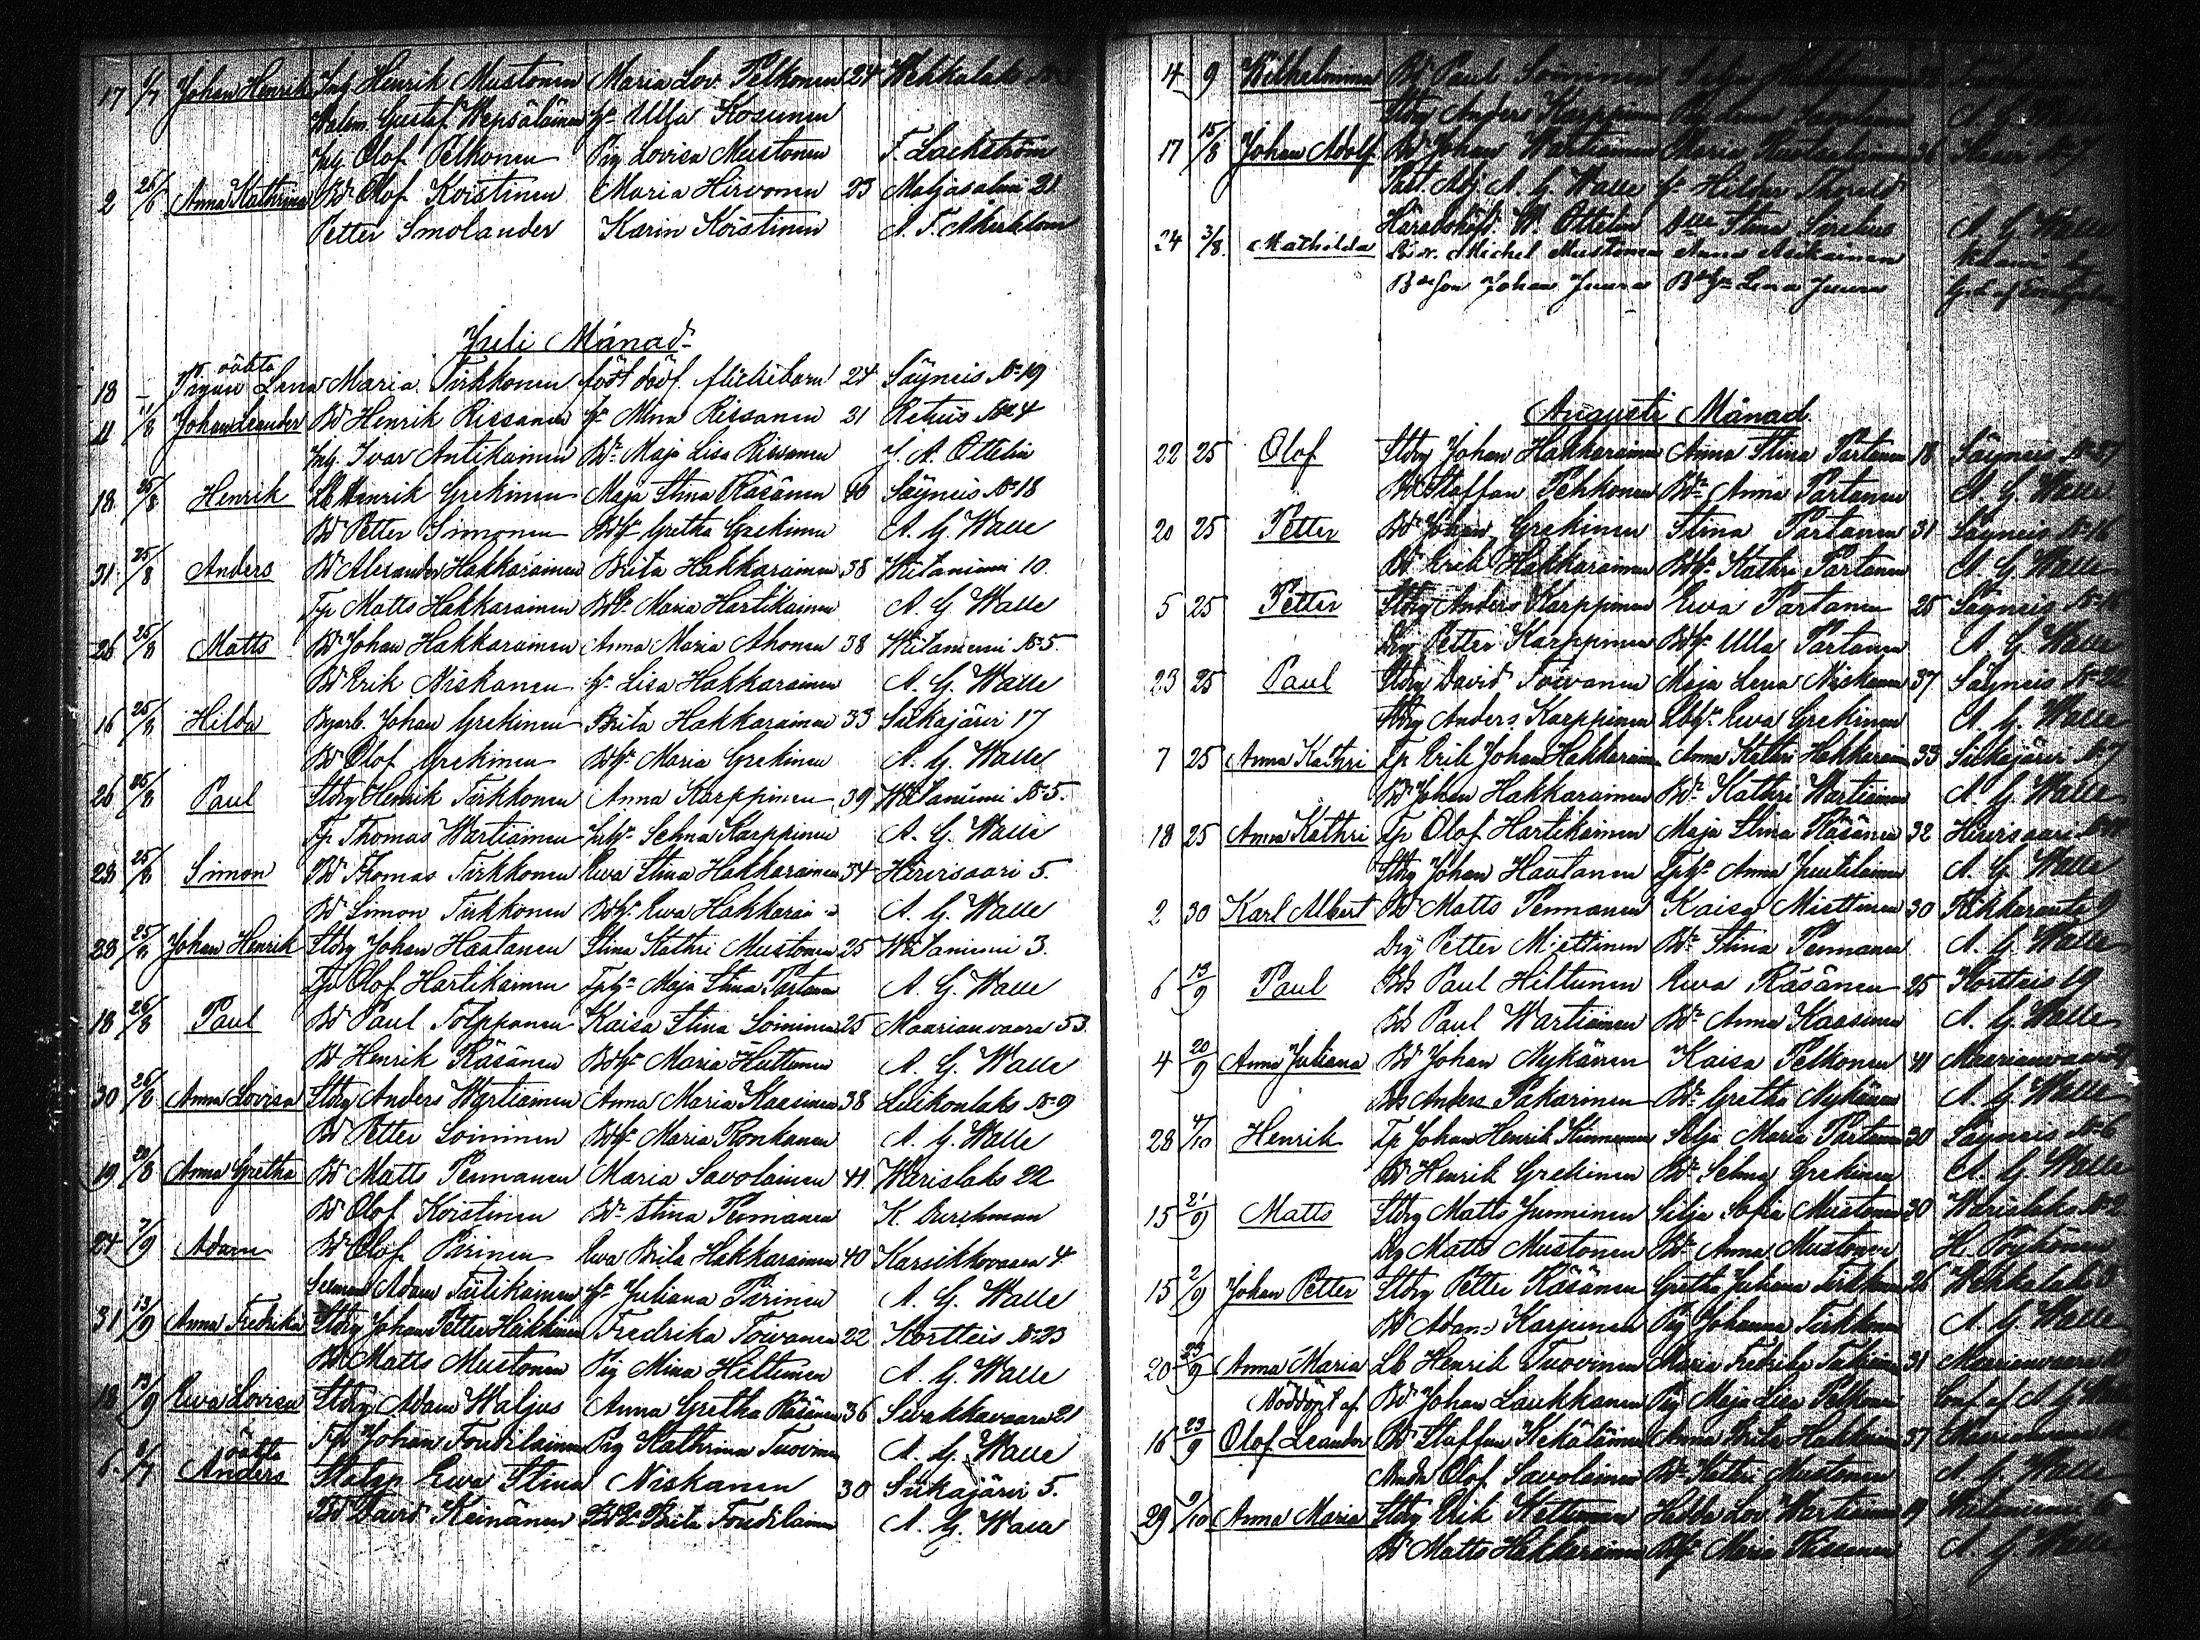 17 6/7 Johan Henrik Inh Henrik Mustonen Maria Lov. Pelkonen 24 Wehkalaks
Gustaf Wepsäläinen hr Ulla Kosunen
Inh Olof Pelkonen Pig Lovisa Mustonen F. Lackström
2 25/6 Anna Kathrina Bd Olof Koistinen Maria Hirvonen 23 Maljasalmi 21
Petter Smolander Karin Koistinen A. F.
Juli Månad
18 – Pigan Lena Maria Tirkkonen oäkta född död flickebarn 24 Säyneis № 19
11 11/8 Johan Leander Bd Henrik Rissanen hr Mina Rissanen 21 Retuis № 4
Inh Ivar Antikainen Br Maja Lisa Rissanen J. A. Ottelin
18 25/8 Henrik Lb Henrik Grekinen Maja Stina Räsänen 40 Säyneis № 18
Bd Petter Simonen Bhr Gretha Grekinen A. G. Walle
31 25/8 Anders Bd Alexander Hakkarainen Brita Hakkarainen 38 Witaniemi 10.
Tp Matts Hakkarainen Bhr Maria Hartikainen A. G. Walle
26 25/8 Matts Bd Johan Hakkarainen Anna Maria Ahonen 38 Witaniemi № 5.
Bd Erik Niskanen hr Lisa Hakkarainen A. G. Walle
16 25/8 Hilda Byarb. Johan Grekinen Brita Hakkarainen 33 Siikajärvi 17
Bd Olof Grekinen Bhr Maria Grekinen A. G. Walle
26 25/8 Paul Stdrg Henrik Tirkkonen Anna Karppinen 39 Witaniemi № 5.
Tp Thomas Wartiainen Inhr Selma Karppinen A. G. Walle
28 25/8 Simon Bd Thomas Tirkkonen Ewa Stina Hakkarainen 34 Hirvisaari 5.
Bd Simon Tirkkonen Bhr Ewa Hakkarai- A. G. Walle
28 25/8 Johan Henrik Stdrg Johan Hautanen Stina Kathri Mustonen 25 Witaniemi 3.
Tp Olof Hartikainen Tphr Maja Stina Partanen A. G. Walle
18 26/8 Paul Bd Paul Tolppanen Kaisa Stina Soininen 25 Maarianvaara 53.
Bd Henrik Räsänen Bhr Maria Hiltunen A. G. Walle
30 26/8 Anna Lovisa Stdrg Anders Wartiainen Anna Maria Kaasinen 38 Luikonlaks № 9
Bd Petter Soininen Bhr Maria Ronkanen A. G. Walle
19 29/8 Anna Gretha Bd Matts Pennanen Maria Savolainen 41 Warislaks 22
Bd Olof Koistinen Br Stina Pennanen K. Burchman
24 7/9 Adam Bd Olof Piirinen Ewa Brita Hakkarainen 40 Karsikkovaara 4.
Adam Tiilikainen hr Juliana Piirinen A. G. Walle
31 13/9 Anna Fredrika Stdrg Johan Petter Heikkinen Fredrika Toivanen 22 Kortteis № 23
Bd Matts Mustonen Pig Mina Hiltunen A. G. Walle
18 13/9 Ewa Lovisa Stdrg Adam Waljus Anna Gretha Räsänen 36 Sivakkavaara 21
Tp Johan Foudilainen Pig Kathrina Tuovinen A. G. Walle
6. 2/7 oäkta Anders Ewa Stina Niskanen 30 Siikajärvi 5.
Bd David Keinänen Bhr Brita Foudilainen A. G. Walle
4 9 Wilhelmina Bd Paul Soininen
Stdrg Anders Karppinen A. G. Walle
17 15/8 Johan Adolf Bd Johan Wartiainen Maria 36
Past. Adj A. G. Walle hr Hilda
Häradshöfd. W. Ottelin Stina Sirelius A. G. Walle
24 3/8. Mathilda Michel Mustonen Anna Asikainen
Johan Juuras Lena Juuras
Augusti Månad.
22 25 Olof Stdrg Johan Hakkarainen Anna Stina Partanen 18 Säyneis № 57
Bd Staffan Pehkonen Br Anna Partanen A. G. Walle
20 25 Petter Bd Johan Grekinen Stina Partanen 31 Säyneis № 16
Bd Erik Hakkarainen Bhr Kathri Partanen A. G. Walle
5 25 Petter Stdrg Anders Karppinen Ewa Partanen 25 Säyneis
Drg Petter Karppinen Bhr Ulla Partanen A. G. Walle
23 25 Paul Stdrg David Toivanen Maja Lena Niskanen 37 Säyneis № 22
Stdrg Anders Karppinen Lbhr Ewa Grekinen A. G. Walle
7 25 Anna Kathri Tp Erik Johan Hakkarain. Anna Kathri Hakkarain 33 Siikajärvi № 7
Bd Johan Hakkarainen Br Kathri Wartiainen A. G. Walle
18 25 Anna Kathri Tp Olof Hartikainen Maja Stina Räsänen 32 Hirvisaari
Stdrg Johan Hautanen Tphr Anna Juutilainen A. G. Walle
2 30 Karl Albert Bd Matts Pennanen Kaisa Miettinen 30
Drg Petter Miettinen Br Stina Pennanen A. G. Walle
6 13/9 Paul Bds Paul Hiltunen Ewa Räsänen 25 Kortteis 19
Bds Paul Wartiainen Br Anna Kaasinen A. G. Walle
4 20/9 Anna Juliana Bd Johan Nykänen Kaisa Pelkonen 41 Maarianvaara
Bds Anders Pakarinen Br Gretha Nykänen A. G. Walle
28 4/10 Henrik Tp Johan Henrik Kinnunen Selja Maria Partanen 30 Säyneis № 6
Bd Henrik Grekinen Br Selma Grekinen A. G. Walle
15 21/9 Matts Stdrg Matts Junninen Silja Sofia Mustonen 30 Warislaks № 2
Drg Matts Mustonen Br Anna Mustonen H. Pöyhönen
15 2/9 Johan Petter Stdrg Petter Räsänen Gretha Juliana Tirkkonen 26 Wehkalaks
Bd Adam Karjunen Pig Johanna Tirkkonen A. G. Walle
20 23/9 Anna Maria Lb Henrik Tuovinen Maria Fredrika 31 Maarianvaara
Nöddöpt af Bd Johan Laukkanen Pig Maja Lisa Pelkonen Conf. af A. G. Walle
16 23/9 Olof Leander Bd Staffan Kekäläinen Anna Brita Hakkarainen 37
Olof Savolainen Br Kathri Mustonen A. G. Walle
29 9/10 Anna Maria Stdrg Erik Kettunen Hedda Lov. Wartiainen 19 Witaniemi
Bd Matts Hakkarainen Bhr Maria Rissanen A. G. Walle